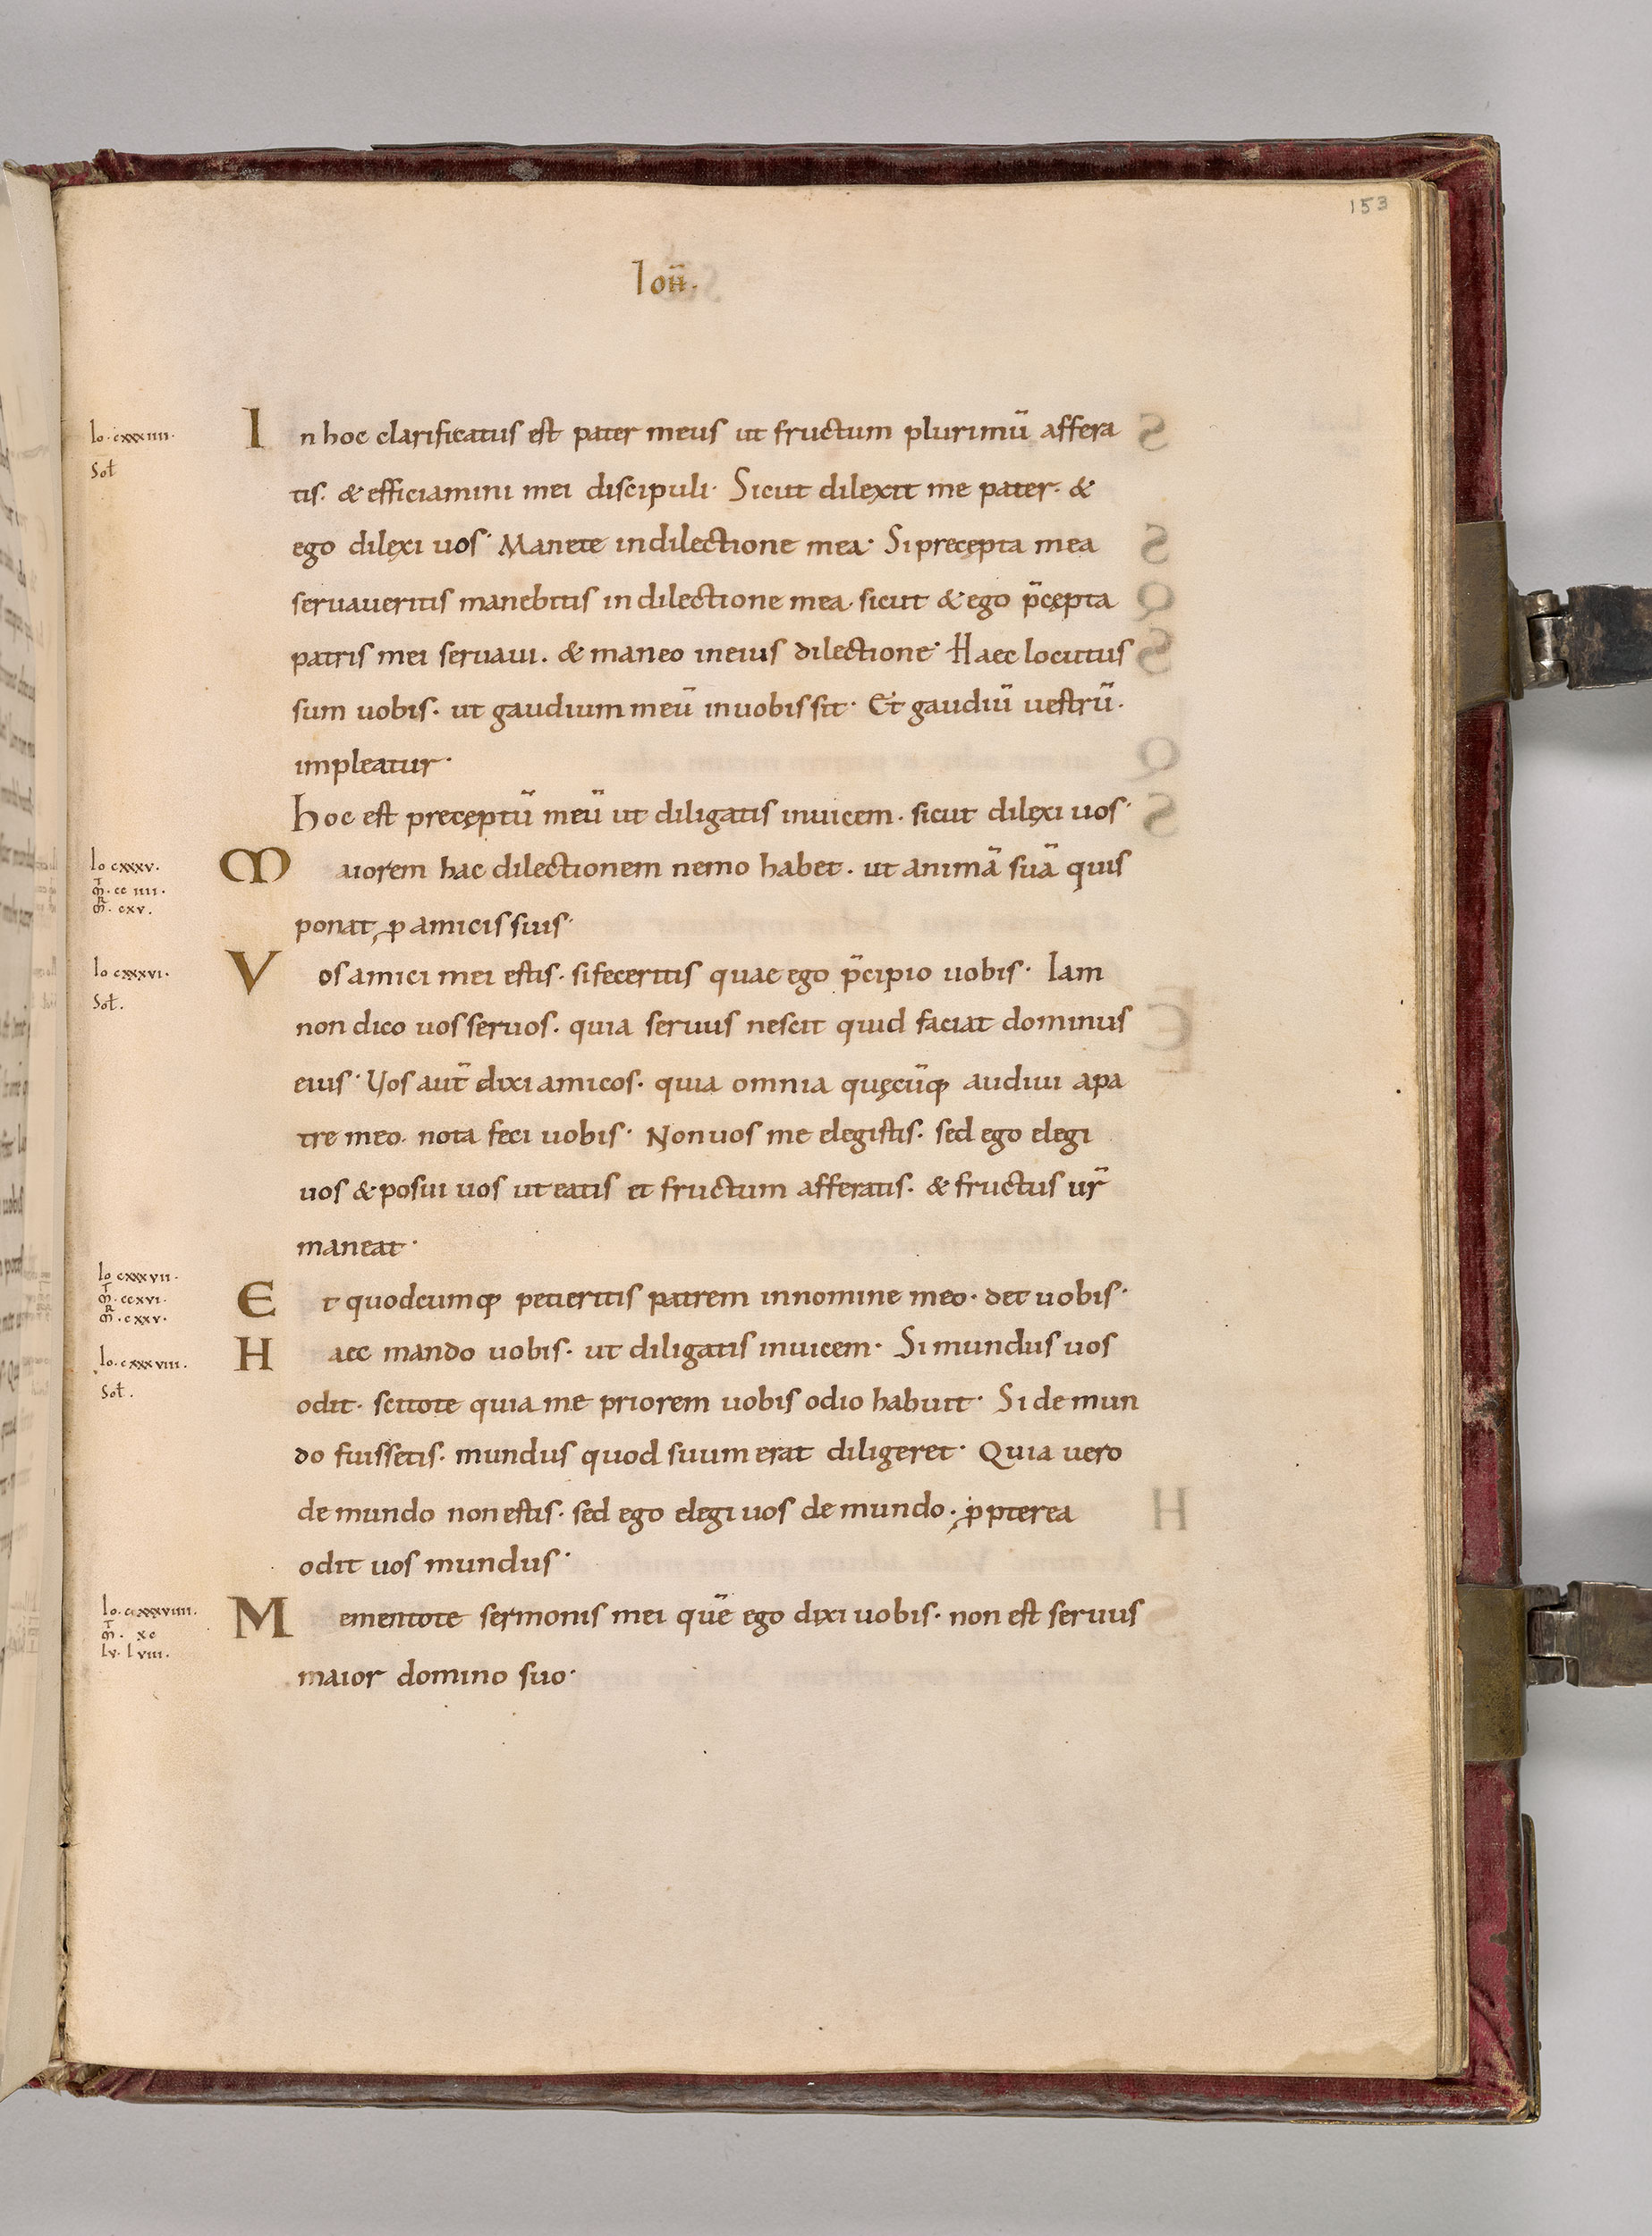 153
Ioħ.
Io·cxxxiiii·
Sot
In hoc clarificatus est pater meus ut fructum plurimū affera
tis· & efficiamini mei discipuli· Sicut dilexit me pater· &
ego dilexi uos· Manete in dilectione mea· Si precępta mea
seruaueritis manebitis in dilectione mea· sicut & ego p̄cępta
patris mei seruaui· & maneo in eius dilectione· Haec locutus
sum uobis· ut gaudium meū in uobis sit· Et gaudiū uestrū·
impleatur·
Hoc est preceptū meū ut diligatis inuicem· sicut dilexi uos·
Io cxxxv·
M̄· cc iiii·
M̄· cxv·
Maiorem hac dilectionem nemo habet· ut animā suā quis
ponat ꝓ amicis suis·
Io cxxxvi·
Sot·
Vos amici mei estis· si feceritis quae ego p̄cipio uobis· Iam
non dico uos seruos· quia seruus nescit quid faciat dominus
eius· Vos aut̄ dixi amicos· quia omnia quęcūq; audiui a pa
tre meo· nota feci uobis· Non uos me elegistis· sed ego elegi
uos & posui uos ut eatis et fructum afferatis· & fructus ur̄
maneat·
Io cxxxvii·
M̄· ccxvi·
M̄· cxxv·
Et quodcumq; petieritis patrem in nomine meo· det uobis·
Io·cxxxviii·
Sot·
Haec mando uobis· ut diligatis inuicem· Si mundus uos
odit· scitote quia me priorem uobis odio habuit· Si de mun
do fuissetis· mundus quod suum erat diligeret· Quia uero
de mundo non estis· sed ego elegi uos de mundo· ꝓpterea
odit uos mundus·
Io·cxxxviiii·
M̄· xc
Lv· lviii·
Mementote sermonis mei quē ego dixi uobis· non est seruus
maior domino suo·